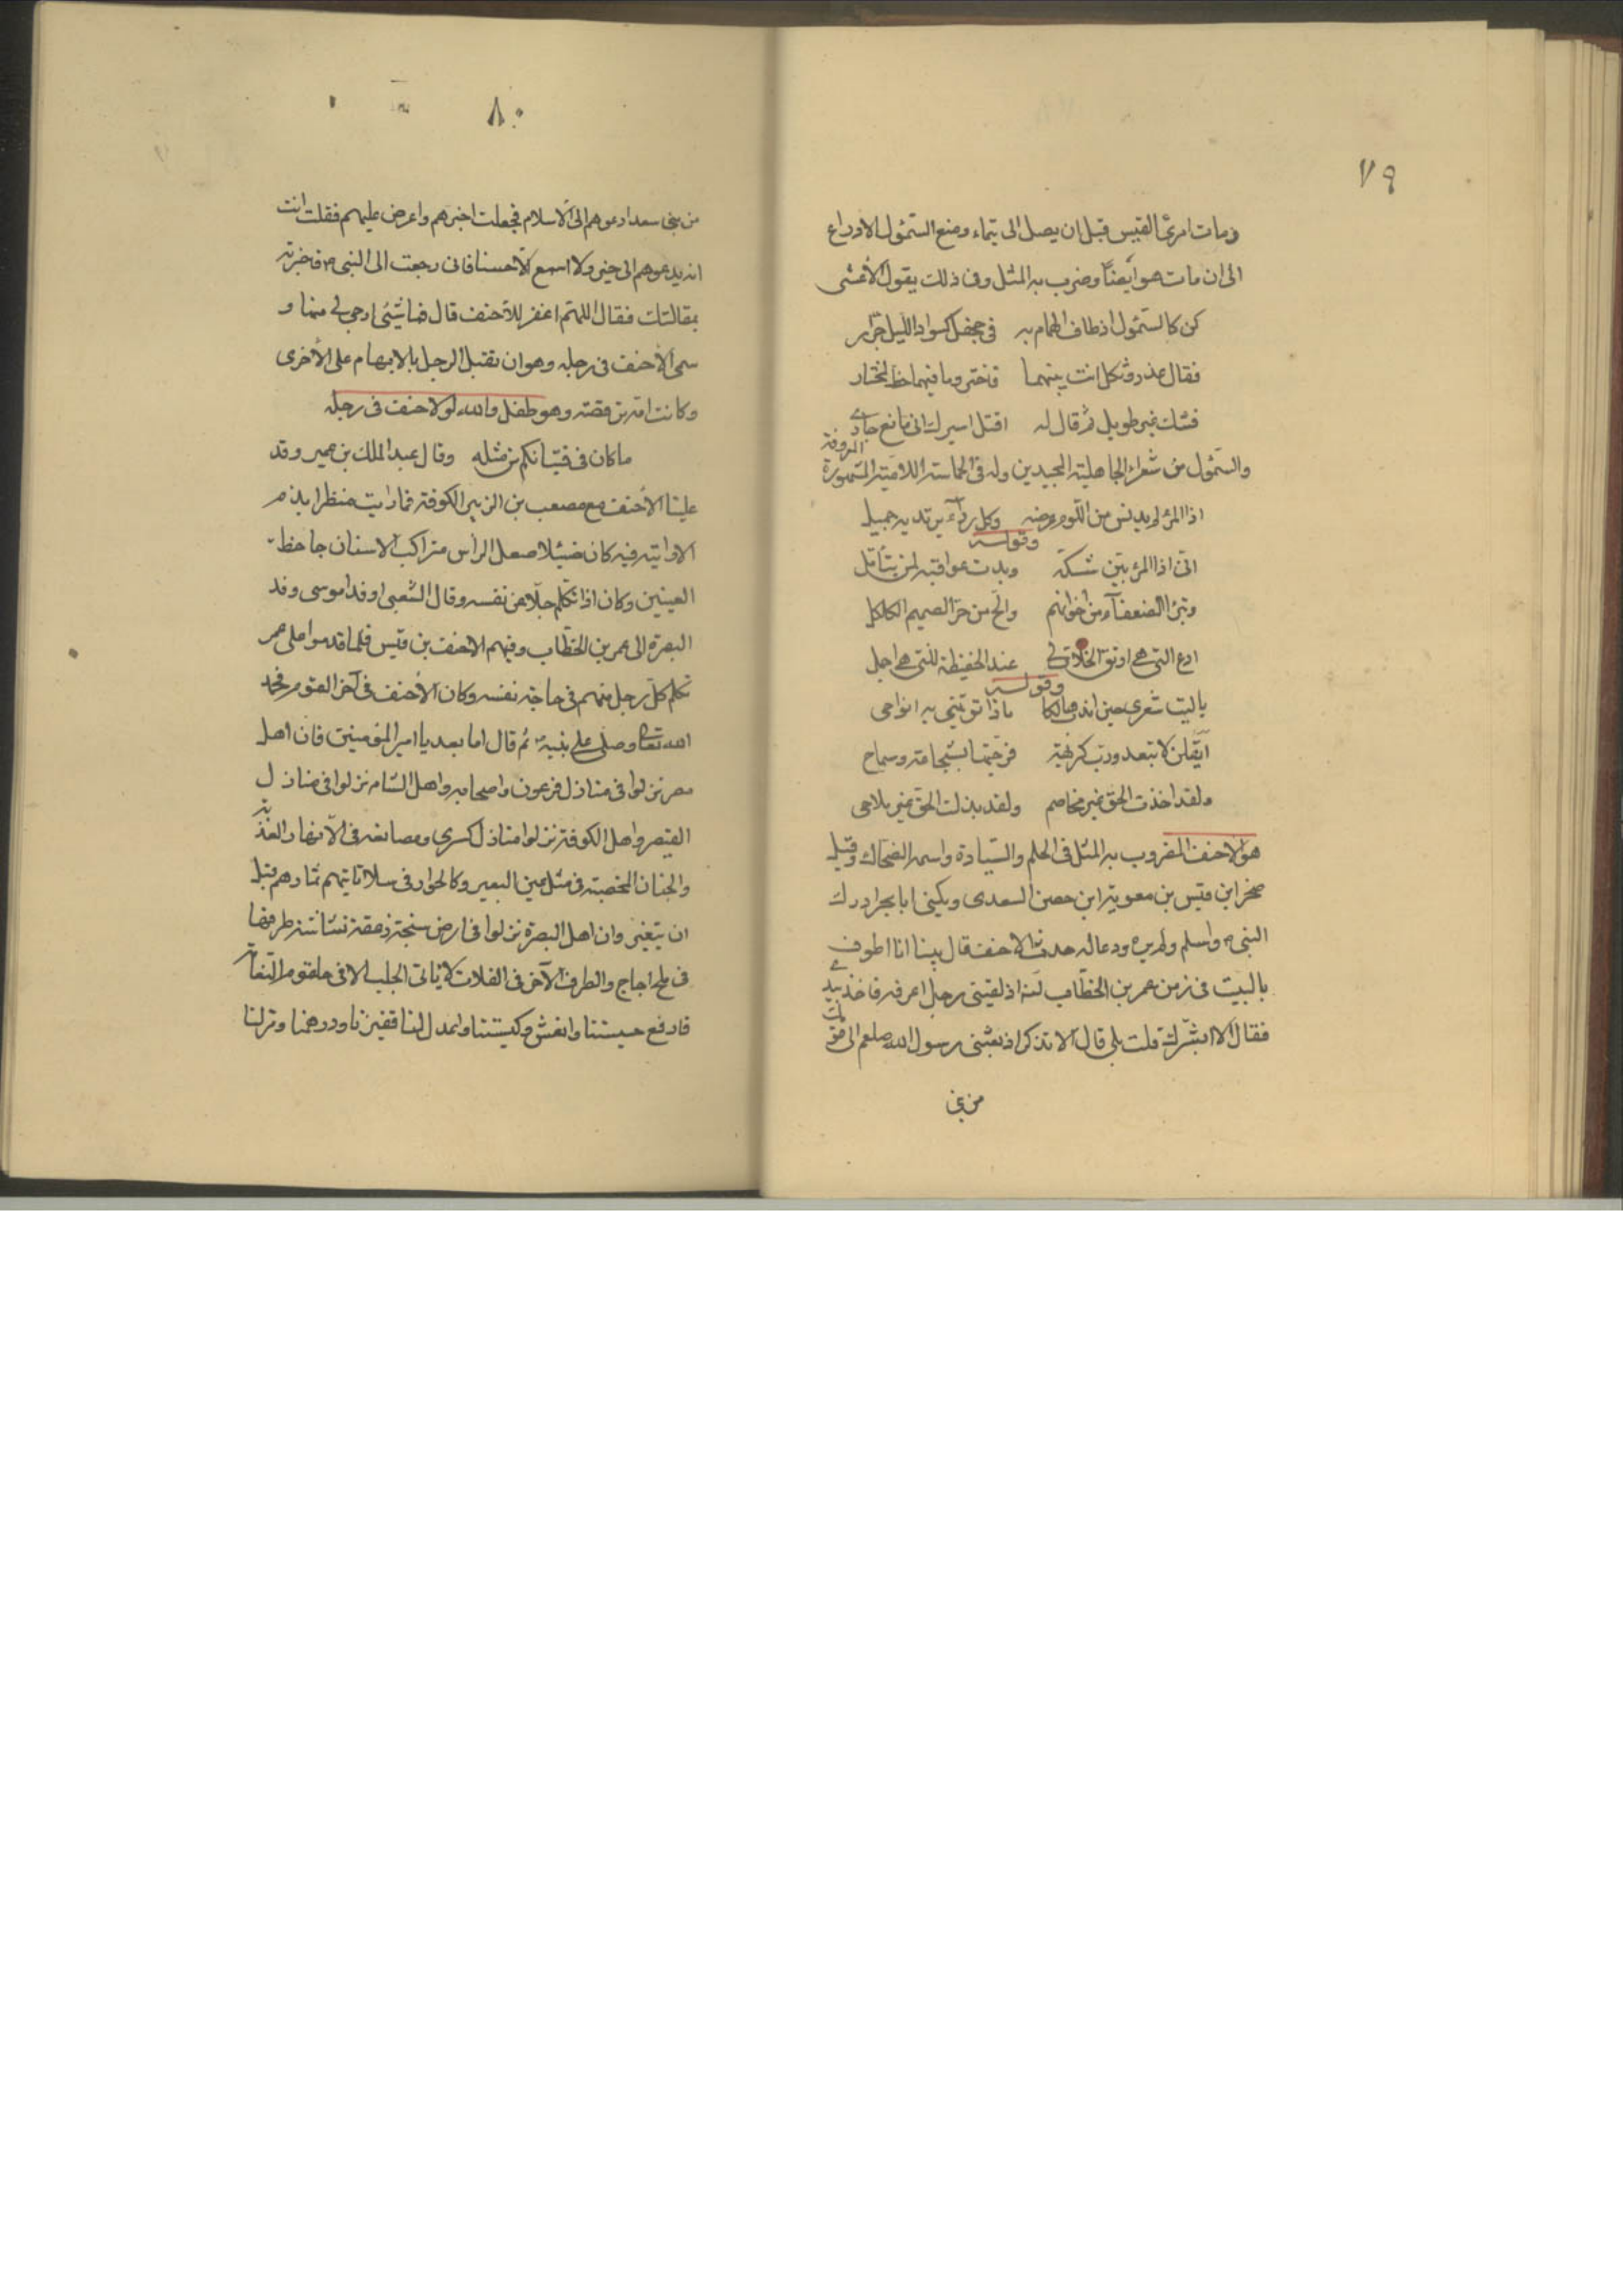 ٧٩
ومات امرئ القيس قبل ان يصل الى تيماء ومنع السمئول الادراع
الى ان مات هو ايضاً وضرب به المثل وفى ذلك يقول الأعشى
كن كالسمئول اذ طاف الهمام به فى جحفل كسواد الليل جرّار
فقال غدر وثكل انت بينهما فاختر وما فيهما حظ لمختار
فشك غير طويل ثم قال له اقتل اسيرك انى مانع جارى
والسمئول من شعراء الجاهلية المجيدين وله فى الحماسة اللامية المشهورة المعروفة
اذا المرء لم يدنس من اللوم عرضه وكل رداء يرتديه جميل
وقوله
انى اذا المرء بيّن شكه وبدت عواقبه لمن يتأمل
وتبرّأ الضعفآء من اخوانهم والح من حرّ الصميم الكلكل
ادع التى هى ارفق الخلات لى عند الحفيظة للتى هى اجمل
وقوله
ياليت شعرى حين اندب هالكا ماذا تؤبنى به انواحى
أيقلن لا تبعد ورب كريهة فرجتها بشجاعة وسماح
ولقد اخذت الحق غير مخاصم ولقد بذلت الحق غير ملاحى
هو الاحنف المضروب به المثل فى الحلم والسيادة واسمه الضحاك وقيل
صخر ابن قيس بن معوية ابن حصن السعدى ويكنى ابا بحر ادرك
النبى ص واسلم ولم يره ودعا له حدث الاحنف قال بينا انا اطوف
بالبيت فى زمن عمر بن الخطّاب اذ لقينى رجل اعرفه فاخذ بيدى
فقال الا ابشّرك قلت بلى قال الا تذكر اذ بعثنى رسول الله صلعم الى قومك
من بنى
٨٠
من بنى سعد ادعوهم الى الاسلام فجعلت اخبرهم واعرض عليهم فقلت انت
انه يدعوهم الى خير ولا اسمع الا حسنا فانى رجعت الى النبى ص فاخبرته
بمقالتك فقال اللهم اغفر للأحنف قال فما شيئى ارجى لى منها و
سمى الأحنف فى رجله وهو ان تقبل الرجل بالابهام على الأخرى
وكانت امه ترقصه وهو طفل والله لولا حنف فى رجله
ما كان فى فتيانكم من مثله وقال عبد الملك بن عمير وقد
علينا الأحنف مع مصعب بن الزبير الكوفة فما رايت منظرا يذم
الا رايته فيه كان ضئيلا صعل الرأس متراكب الاسنان جاحظ
العينين وكان اذا تكلم جلّا عن نفسه وقال الشعبى اوفد ابو موسى وفد
البصرة الى عمر بن الخطّاب وفيهم الاحنف بن قيس فلما قدموا على عمر
تكلم كل رجل منهم فى حاجة نفسه وكان الأحنف فى آخر القوم فحمد
الله تعالى وصلى على نبيه ثم قال اما بعد يا امير المؤمنين فان اهل
مصر نزلوا فى منازل فرعون واصحابه واهل الشام نزلوا فى منازل
القيصر واهل الكوفة نزلوا منازل كسرى ومصانعه فى الأنهار العذبة
والجنان المخصبة فى مثل عين البعير وكالحوار فى سلا تأتيهم ثمارهم قبل
ان يتغير وان اهل البصرة نزلوا فى ارض سبخة زعقة نشاشة طرفها
فى ملح اجاج والطرف الآخر فى الفلات لا يأتى الجلب الا فى حلقوم النعامة
فارفع خسيستنا وانعش وكيستنا واعدل لنا قفيزنا ودرهمنا ومر لنا